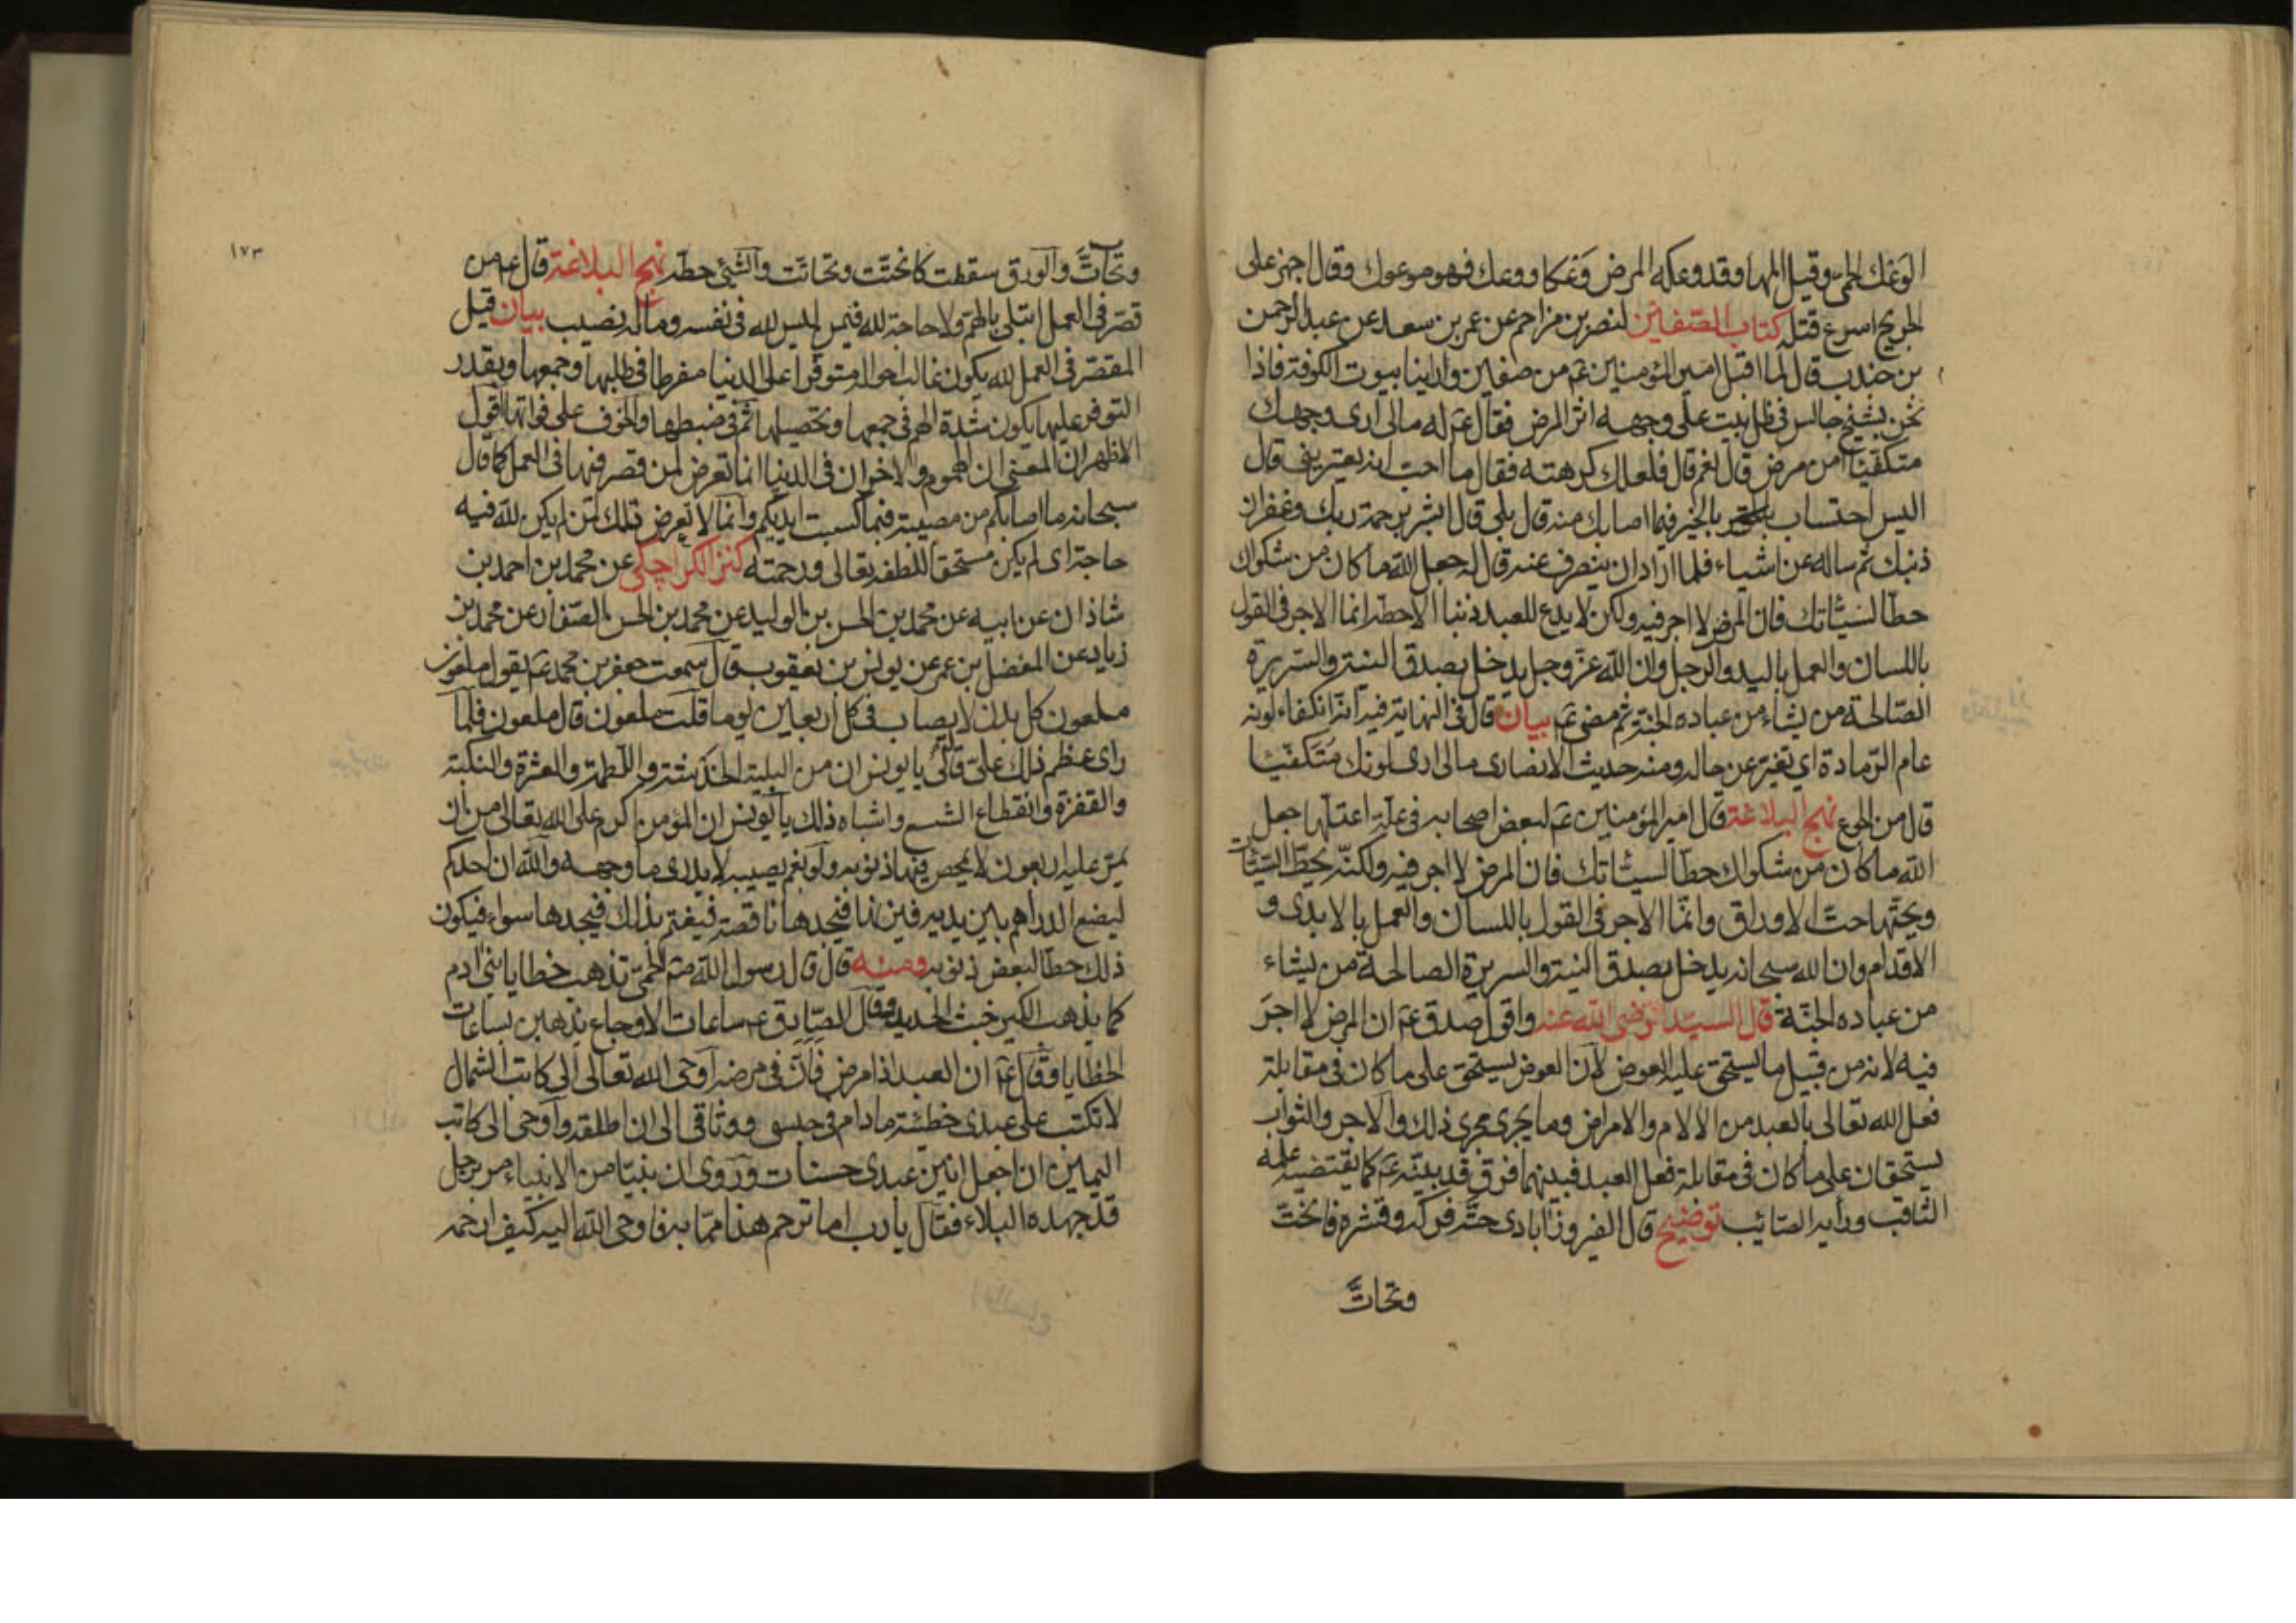 الوَعْك الحمّى وقيل المها وقد وعكه المرض وَعْكا ووعك فهو موعوك وقال اجهز على
الجريح اسرع قتله كتاب الصّفين لنصر بن مزاحم عن عمر بن سعد عن عبد الرحمن
بن جندب قال لما اقبل امير المؤمنين عم من صفين وراينا بيوت الكوفة فاذا
نحن بشيخ جالس فى ظل بيت على وجهه اثر المرض فقال عم له مالى ارى وجهك
متكفّيًا امن مرض قال نعم قال فلعلك كرهته فقال ما احب انه يعترينى قال
اليس احتساب بالخير فيما اصابك منه قال بلى قال ابشر برحمة ربك وغفران
ذنبك ثم ساله عن اشياء فلما اراد ان ينصرف عنه قال له جعل الله ما كان من شكواك
حطّا لسيّئاتك فان المرض لا اجر فيه ولكن لا يدع للعبد ذنبا الا حطه انما الاجر فى القول
باللسان والعمل باليد والرجل وان الله عزّ وجل يدخل بصدق النية والسّريرة
الصّالحة من يشاء من عباده الجنة ثم مضى عم بيان قال فى النهاية فيه انّه انكفاء لونه
عام الرّمادة اى تغيّر عن حاله ومنه حديث الانصارى مالى ارى لونك مُتَكَفّيًا
قال من الجوع نهج البلاغة قال امير المؤمنين عم لبعض اصحابه فى علّة اعتلّها جعل
الله ما كان من شكواك حطّا لسيئاتك فان المرض لا اجر فيه ولكنّه يحطّ السّيّئات
ويحتّها حتّ الاوراق وانّما الاجر فى القول باللسان والعمل بالايدى و
الاقدام وان الله سبحانه يدخل بصدق النية والسريرة الصالحة من يشاء
من عباده الجنّة قال السيّد رضى الله عنه واقول صدق عم ان المرض لا اجرَ
فيه لانه من قبيل ما يستحق عليه العوض لان العوض يستحق على ما كان فى مقابلة
فعل الله تعالى بالعبد من الآلام والامراض وما يجرى مجرى ذلك والاجر والثواب
يستحقان على ما كان فى مقابلة فعل العبد فبينهما فرق قد بيّنه عم كما يقتضيه علمه
الثاقب ورأيه الصّائب توضيح قال الفيروزابادى حتّه فركه وقشره فانحتّ
وتحاتَّ
١٧٣
وتَحاتَّ والورق سقطت كانحتّت وتحاتّت والشىء حطّه نهج البلاغة قال عم من
قصّر فى العمل ابتلى بالهمّ ولا حاجة لله فيمن ليس لله فى نفسه وماله نصيب بيان قيل
المقصّر فى العمل لله يكون غالب احواله متوفّرا على الدنيا مفرطا فى طلبها وجمعها وبقدر
التوفر عليها يكون شدة الهمّ فى جمعها وتحصيلها ثمّ فى ضبطها والخوف على فواتها اقول
الاظهر ان المعنى ان الهموم والاحزان فى الدنيا انما تعرض لمن قصر فيها فى العمل كما قال
سبحانه ما اصابكم من مصيبة فبما كسبت ايديكم وانما لا تعرض تلك لمن لم يكن لله فيه
حاجة اى لم يكن مستحقّا للطفه تعالى ورحمته كنز الكراجكى عن محمد بن احمد بن
شاذان عن ابيه عن محمد بن الحسن بن الوليد عن محمد بن الحسن الصّفار عن محمد بن
زياد عن المفضل بن عمر عن يونس بن يعقوب قال سمعت جعفر بن محمد عم يقول ملعون
ملعون كل بدن لا يصاب فى كل اربعين يوما قلت ملعون قال ملعون فلمّا
راى عظم ذلك علىّ قال لى يا يونس ان من البلية الخدشة واللّطمة والعثرة والنكبة
والقفزة وانقطاع الشسع واشباه ذلك يا يونس ان المؤمن اكرم على الله تعالى من ان
يمرّ عليه اربعون لا يمحص فيها ذنوبه ولو بغم يصيبه لا يدرى ما وجهه والله ان احدكم
ليضع الدراهم بين يديه فيزنها فيجدها ناقصة فيغتم بذلك فيجدها سواء فيكون
ذلك حطّا لبعض ذنوبه ومنه قال قال رسول الله صم الحمّى تذهب خطايا بنى ادم
كما يذهب الكير خبث الحديد وقال الصّادق عم ساعات الاوجاع يذهبن بساعات
الخطايا وقال عم ان العبد اذا مرض فَاَنَّ فى مرضه اوحى الله تعالى الى كاتب الشمال
لا تكتب على عبدى خطيئة مادام فى حبسى ووثاقى الى ان اطلقه واوحى الى كاتب
اليمين ان اجعل انين عبدى حسنات وروى ان نبيّا من الانبياء مر برجل
قد جهده البلاء فقال يا رب اما ترحم هذا ممّا به فاوحى الله اليه كيف ارحمه